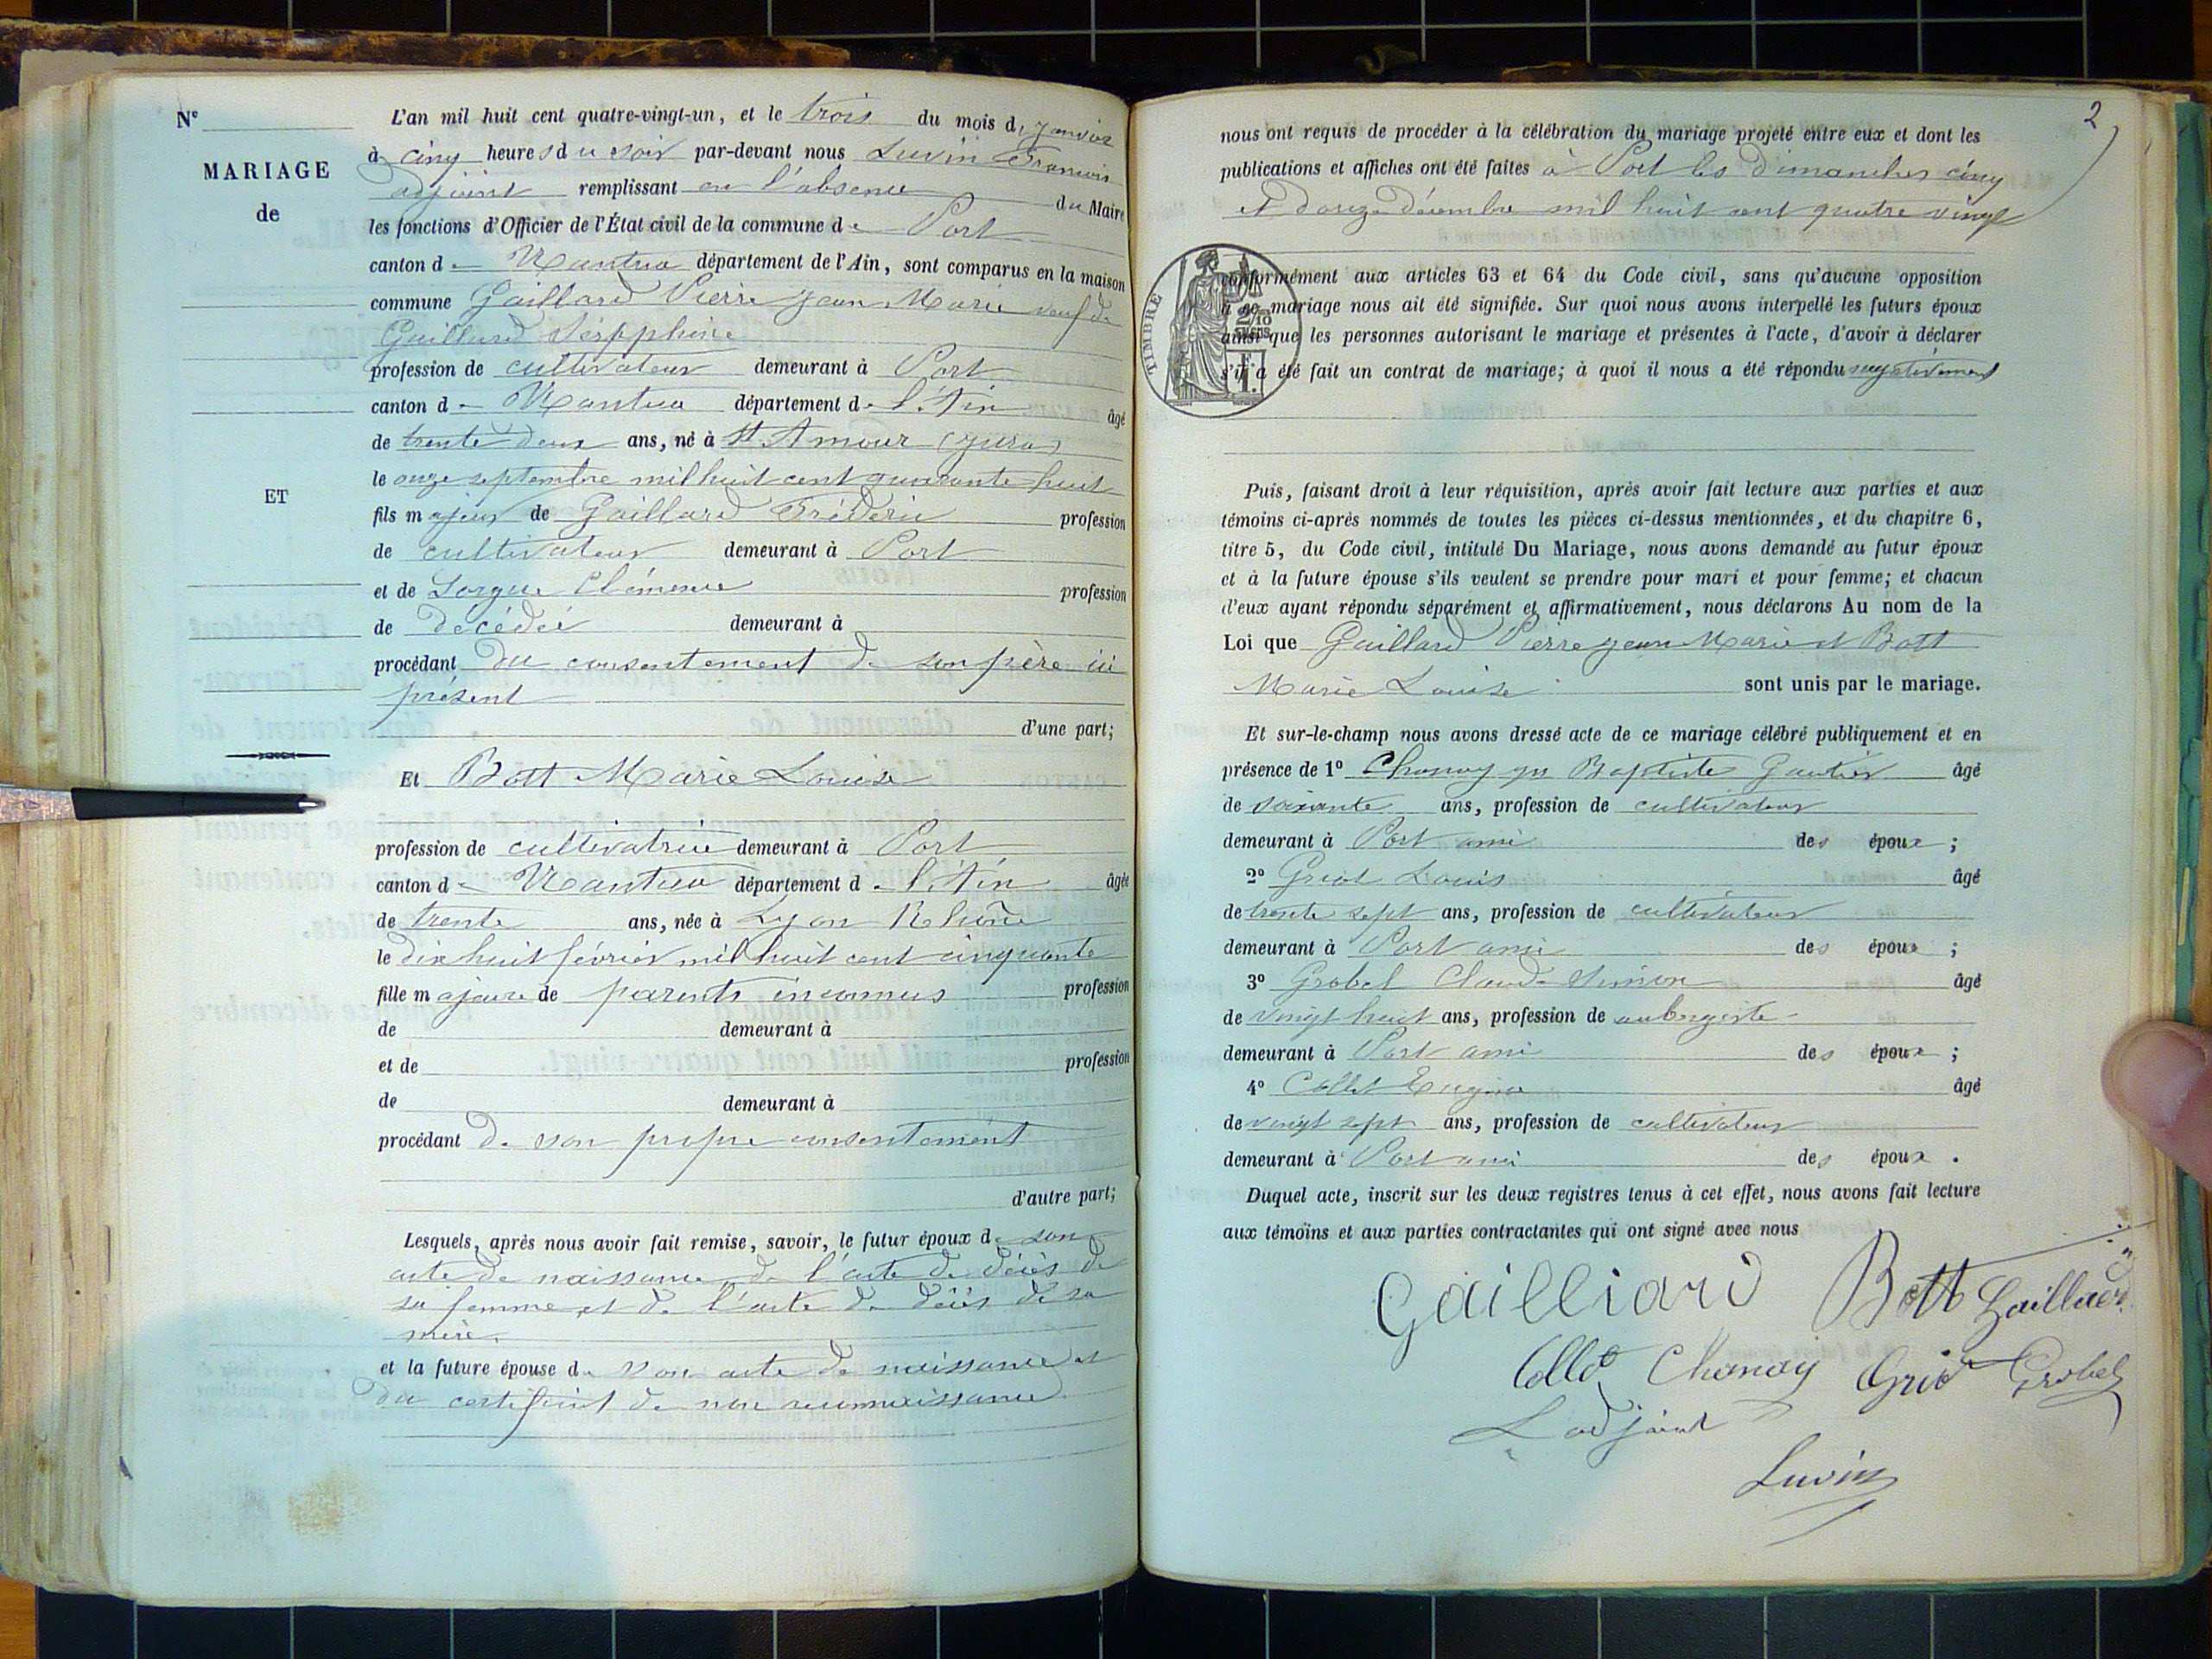 Nº
MARIAGE
de
ET
L'an mil huit cent quatre-vingt-un, et le trois du mois de Janvier
à cinq heures du soir par-devant nous Luvin François
adjoint remplissant en l'absence du Maire
les fonctions d'Officier de l'État civil de la commune de Port
canton de Nantua département de l'Ain, sont comparus en la maison
commune Gaillard Pierre Jean Marie veuf de
Gaillard Séraphine
profession de cultivateur demeurant à Port
canton de Nantua département de l'Ain âgé
de trente deux ans, né à St Amour (Jura)
le onze septembre mil huit cent quarante huit
fils majeur de Gaillard Fréderic profession
de cultivateur demeurant à Port
et de Lorgue Clémence profession
de décédée demeurant à
procédant du consentement de son père ici
présent
d'une part;
Et Bott Marie Louise
profession de cultivatrice demeurant à Port
canton de Nantua département de l'Ain âgée
de trente ans, née à Lyon Rhône
le dix huit février mil huit cent cinquante
fille majeure de parents inconnus profession
de demeurant à
et de profession
de demeurant à
procédant de son propre consentement
d'autre part;
Lesquels, après nous avoir fait remise, savoir, le futur époux de son
acte de naissance, de l'acte de décès de
sa femme et de l'acte de décès de sa
mère.
et la future épouse de son acte de naissance et
du certificat de non reconnaissance
2
nous ont requis de procéder à la célébration du mariage projeté entre eux et dont les
publications et affiches ont été faites à Port les Dimanches cinq
et douze Décembre mil huit cent quatre vingt
TIMBRE
2/10
EN SUS
conformément aux articles 63 et 64 du Code civil, sans qu'aucune opposition
à ce mariage nous ait été signifiée. Sur quoi nous avons interpellé les futurs époux
ainsi que les personnes autorisant le mariage et présentes à l'acte, d'avoir à déclarer
s'il a été fait un contrat de mariage; à quoi il nous a été répondu négativement
Puis, faisant droit à leur réquisition, après avoir fait lecture aux parties et aux
témoins ci-après nommés de toutes les pièces ci-dessus mentionnées, et du chapitre 6,
titre 5, du Code civil, intitulé Du Mariage, nous avons demandé au futur époux
et à la future épouse s'ils veulent se prendre pour mari et pour femme; et chacun
d'eux ayant répondu séparément et affirmativement, nous déclarons Au nom de la
Loi que Gaillard Pierre Jean Marie et Bott
Marie Louise sont unis par le mariage.
Et sur-le-champ nous avons dressé acte de ce mariage célébré publiquement et en
présence de 1º Chanay Baptiste Gautier âgé
de soixante ans, profession de cultivateur
demeurant à Port ami des époux ;
2º Griot Louis âgé
de trente sept ans, profession de cultivateur
demeurant à Port ami des époux ;
3º Grobel Claude Simon âgé
de vingt huit ans, profession de aubergiste
demeurant à Port ami des époux ;
4º Collet Eugène âgé
de vingt sept ans, profession de cultivateur
demeurant à Port ami des époux .
Duquel acte, inscrit sur les deux registres tenus à cet effet, nous avons fait lecture
aux témoins et aux parties contractantes qui ont signé avec nous
Gailliard Bott Gaillard
Collet Chanay Griot Grobel
L'adjoint
Luvin